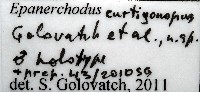 Epanerchodus curtigonopus
Golovatch et al., n. sp.
♂ holotype
+ prep. 43/2010 SG
det. S. Golovatch, 2011